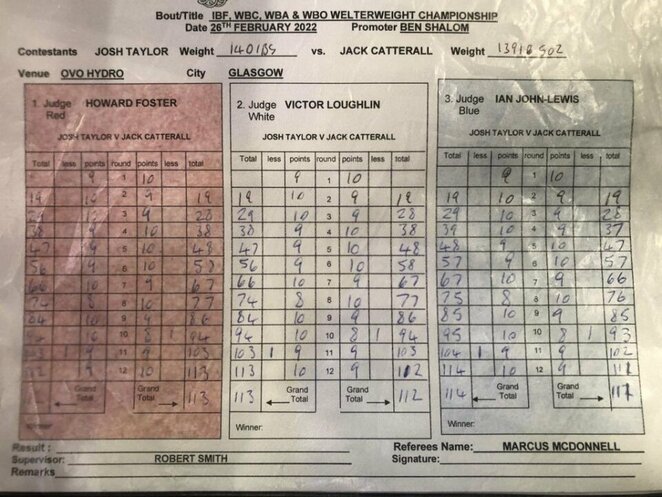 Bout/Title IBF, WBC, WBA & WBO WELTERWEIGHT CHAMPIONSHIP
Date 26TH FEBRUARY 2022 Promoter BEN SHALOM
Contestants JOSH TAYLOR Weight 140lbs vs. JACK CATTERALL Weight
Venue OVO HYDRO City GLASGOW
1. Judge HOWARD FOSTER
Red
JOSH TAYLOR V JACK CATTERALL
Total less points round points less total
9 1 10
19 10 2 9 19
29 3 9 28
38 9 4 10 38
47 9 5 10 48
56 9 6 10 58
66 10 7 9 67
74 8 8 10 77
84 10 9 9 86
10 10 8 1 94
103 9 11 9 103
9 12 10 113
Grand Total 113
2. Judge VICTOR LOUGHLIN
White
JOSH TAYLOR V JACK CATTERALL
Total less points round points less total
9 1 10
19 10 2 9 19
29 10 3 9 28
38 9 4 10 38
47 9 5 10 48
56 9 6 10 58
66 10 7 9 67
74 8 8 10 77
84 10 9 9 86
94 10 10 8 1 94
103 1 9 11 9 103
113 10 12 9 112
113 Grand Total 112
Winner:
3. Judge IAN JOHN-LEWIS
Blue
JOSH TAYLOR V JACK CATTERALL
Total less points round points less total
9 1 10
19 10 2 9 19
29 10 3 9 28
39 10 4 9 37
48 9 5 10 47
57 9 6 10 57
67 10 7 9 66
75 8 8 10 76
85 10 9 9 85
95 10 10 8 1 93
104 1 9 11 9 102
114 10 12 9 111
114 Grand Total 111
Winner:
Result :
Supervisor: ROBERT SMITH
Remarks
Referees Name: MARCUS MCDONNELL
Signature: